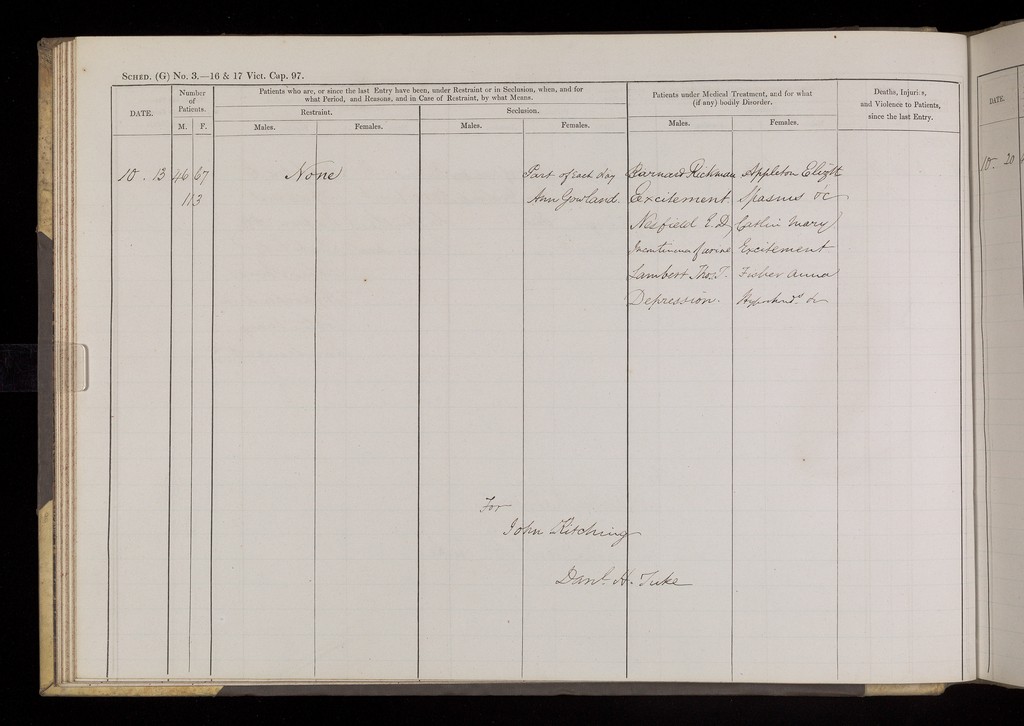 SCHED. (G) No. 3.—16 & 17 Vict. Cap. 97.
DATE.
Number of Patients.
M. F.
Patients who are, or since the last Entry have been, under Restraint or in Seclusion, when, and for
what Period, and Reasons, and in Case of Restraint, by what Means.
Restraint.
Males. Females.
Seclusion.
Males. Females.
Patients under Medical Treatment, and for what
(if any) bodily Disorder.
Males. Females.
Deaths, Injuries,
and Violence to Patients,
since the last Entry.
10 . 13 46 67 None Part of each day Barnard Richman Appleton Elizth
113 Ann Gowland. Excitement. Spasms &c
Nesfield E. D. Catlin Mary
Incontinence of urine Excitement
Lambert Thos. T. Fisher Anna
Depression. &c
For
John Kitching
Danl. H. Tuke
DATE.
10 20